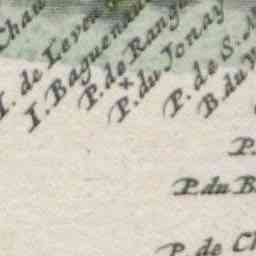 Chau
I. de Leven
I. Baguenau
P. de Rang
P. du Jonay
P. de S. 
B. du
P.
P. du B
P. de Ch